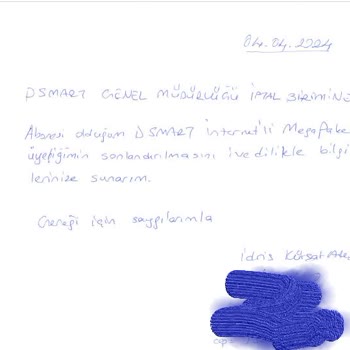 04.04.2024
DSMART GENEL MÜDÜRLÜĞÜ İPTAL BİRİMİNE
Abonesi olduğum DSMART internet'li Megapake
üyeliğimin sonlandırılmasını ivedilikle bilgi
lerinize sunarım.
Gereği için saygılarımla
İdris Kürşat